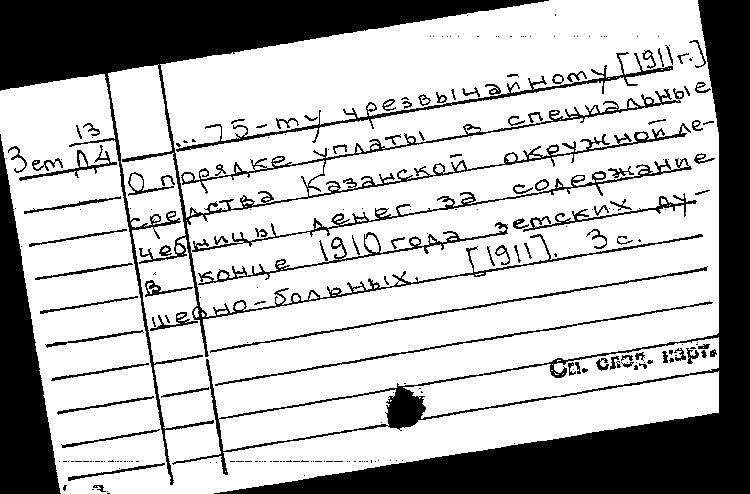 13
Зет Д4
... 75-ту чрезвычайному [1911 г.]
О порядке уплаты в специальные
средства Казанской окружной ле-
чебницы денег за содержание
в конце 1910 года земских ду-
шевно-больных. [1911]. 3 с.
См. след. карт.